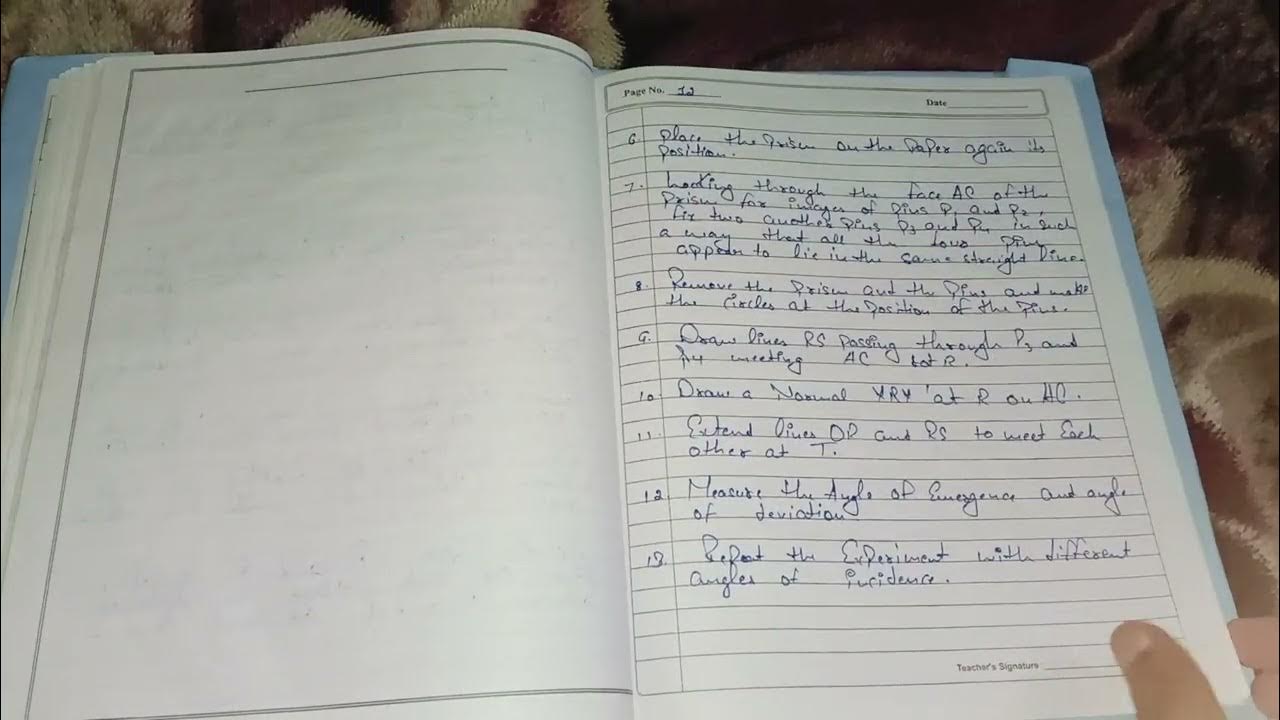 Page No. 12
Date
6 Place the Prism on the Paper again its
position.
7. Looking through the face AC of the
Prism for images of Pins P1 and P2,
fix two another Pins P3 and P4 in such
a way that all the four Pins
appear to lie in the same straight line.
8. Remove the Prism and the Pins and make
the Circles at the Position of the Pins.
9. Draw lines RS Passing through P3 and
P4 meeting AC at R.
10 Draw a Normal at R on AC.
11. Extend lines and RS to meet Each
other at T.
12. Measure the Angle of Emergence and angle
of deviation
13. Repeat the Experiment with different
angles of incidence.
Teacher's Signature